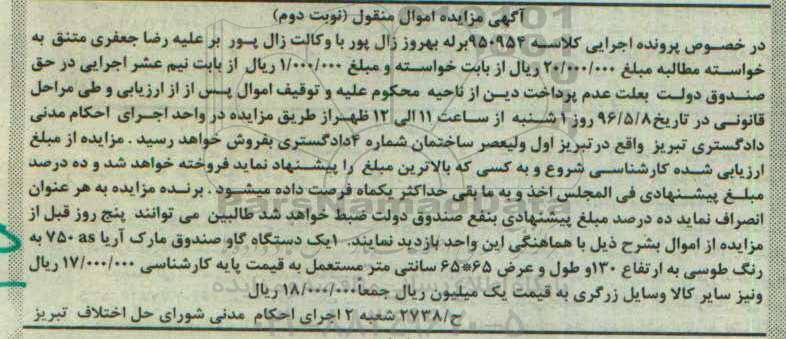 آگهی مزایده اموال منقول (نوبت دوم)
در خصوص پرونده اجرایی کلاسه ۹۵۰۹۵۴برله بهروز زال پور با وکالت زال پور بر علیه رضا جعفری متنق به
خواسته مطالبه مبلغ ۲۰/۰۰۰/۰۰۰ ریال از بابت خواسته و مبلغ ۱/۰۰۰/۰۰۰ ریال از بابت نیم عشر اجرایی در حق
صندوق دولت بعلت عدم پرداخت دین از ناحیه محکوم علیه و توقیف اموال پس از از ارزیابی و طی مراحل
قانونی در تاریخ ۹۶/۵/۸ روز ۱ شنبه از ساعت ۱۱ الی ۱۲ ظهراز طریق مزایده در واحد اجرای احکام مدنی
دادگستری تبریز واقع درتبریز اول ولیعصر ساختمان شماره ۴دادگستری بفروش خواهد رسید . مزایده از مبلغ
ارزیابی شده کارشناسی شروع و به کسی که بالاترین مبلغ را پیشنهاد نماید فروخته خواهد شد و ده درصد
مبلغ پیشنهادی فی المجلس اخذ و به ما بقی حداکثر یکماه فرصت داده میشود . برنده مزایده به هر عنوان
انصراف نماید ده درصد مبلغ پیشنهادی بنفع صندوق دولت ضبط خواهد شد طالبین می توانند پنج روز قبل از
مزایده از اموال بشرح ذیل با هماهنگی این واحد بازدید نمایند. ۱یک دستگاه گاو صندوق مارک آریا as ۷۵۰ به
رنگ طوسی به ارتفاع ۱۳۰و طول و عرض ۶۵*۶۵ سانتی متر مستعمل به قیمت پایه کارشناسی ۱۷/۰۰۰/۰۰۰ ریال
ونیز سایر کالا وسایل زرگری به قیمت یک میلیون ریال جمعا۱۸/۰۰۰/۰۰۰ ریال
ح/۲۷۳۸ شعبه ۲ اجرای احکام مدنی شورای حل اختلاف تبریز
ParsNamadData